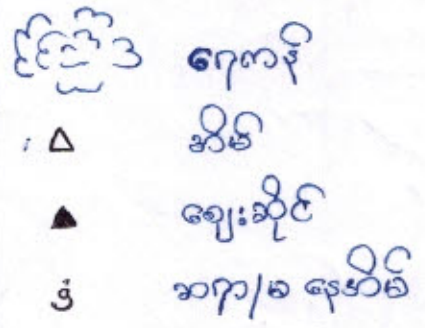 ရေကန်
အိမ်
ဈေးဆိုင်
ဆရာ/မ နေအိမ်